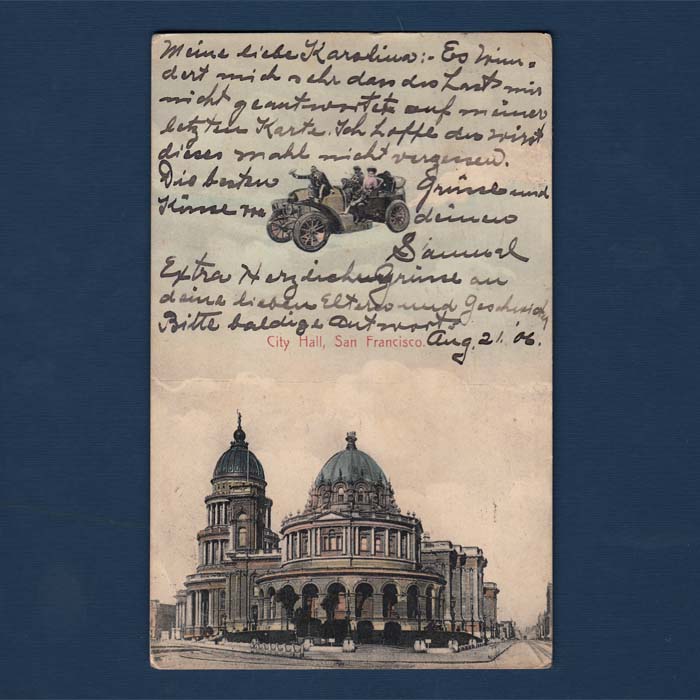 Meine liebe Karolina:- Es wun-
dert mich sehr dass du hast mir
nicht geantwortet auf meiner
letzten Karte. Ich hoffe du wirst
dieses mahl nicht vergessen.
Die besten Grüsse und
Küsse von deinem
Samuel
Extra Herzlichen Grüsse an
deine lieben Eltern und Geschwister
Bitte baldige Antwort.
Aug. 21. '06.
City Hall, San Francisco.